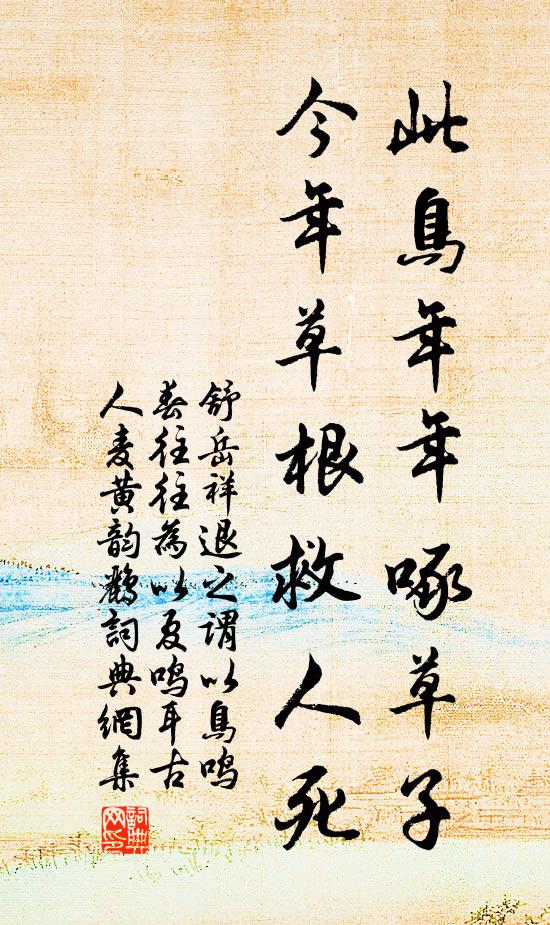 此鳥年年啄草子
今年草根救人死
舒岳祥退之謂以鳥鳴
春往往為以夏鳴耳古
人麦黄韵鹂詞典網集
詞典
网印